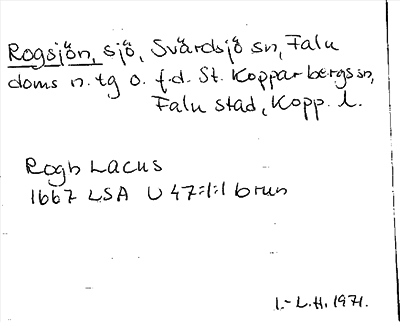 Rogsjön, sjö, Svärdsjö sn, Falu
doms n. tg o. f.d. St. Kopparbergs sn,
Falu stad, Kopp. l.
Rogh Lacus
1667 LSA U 47:1:1 brun
I.-L.H. 1971.